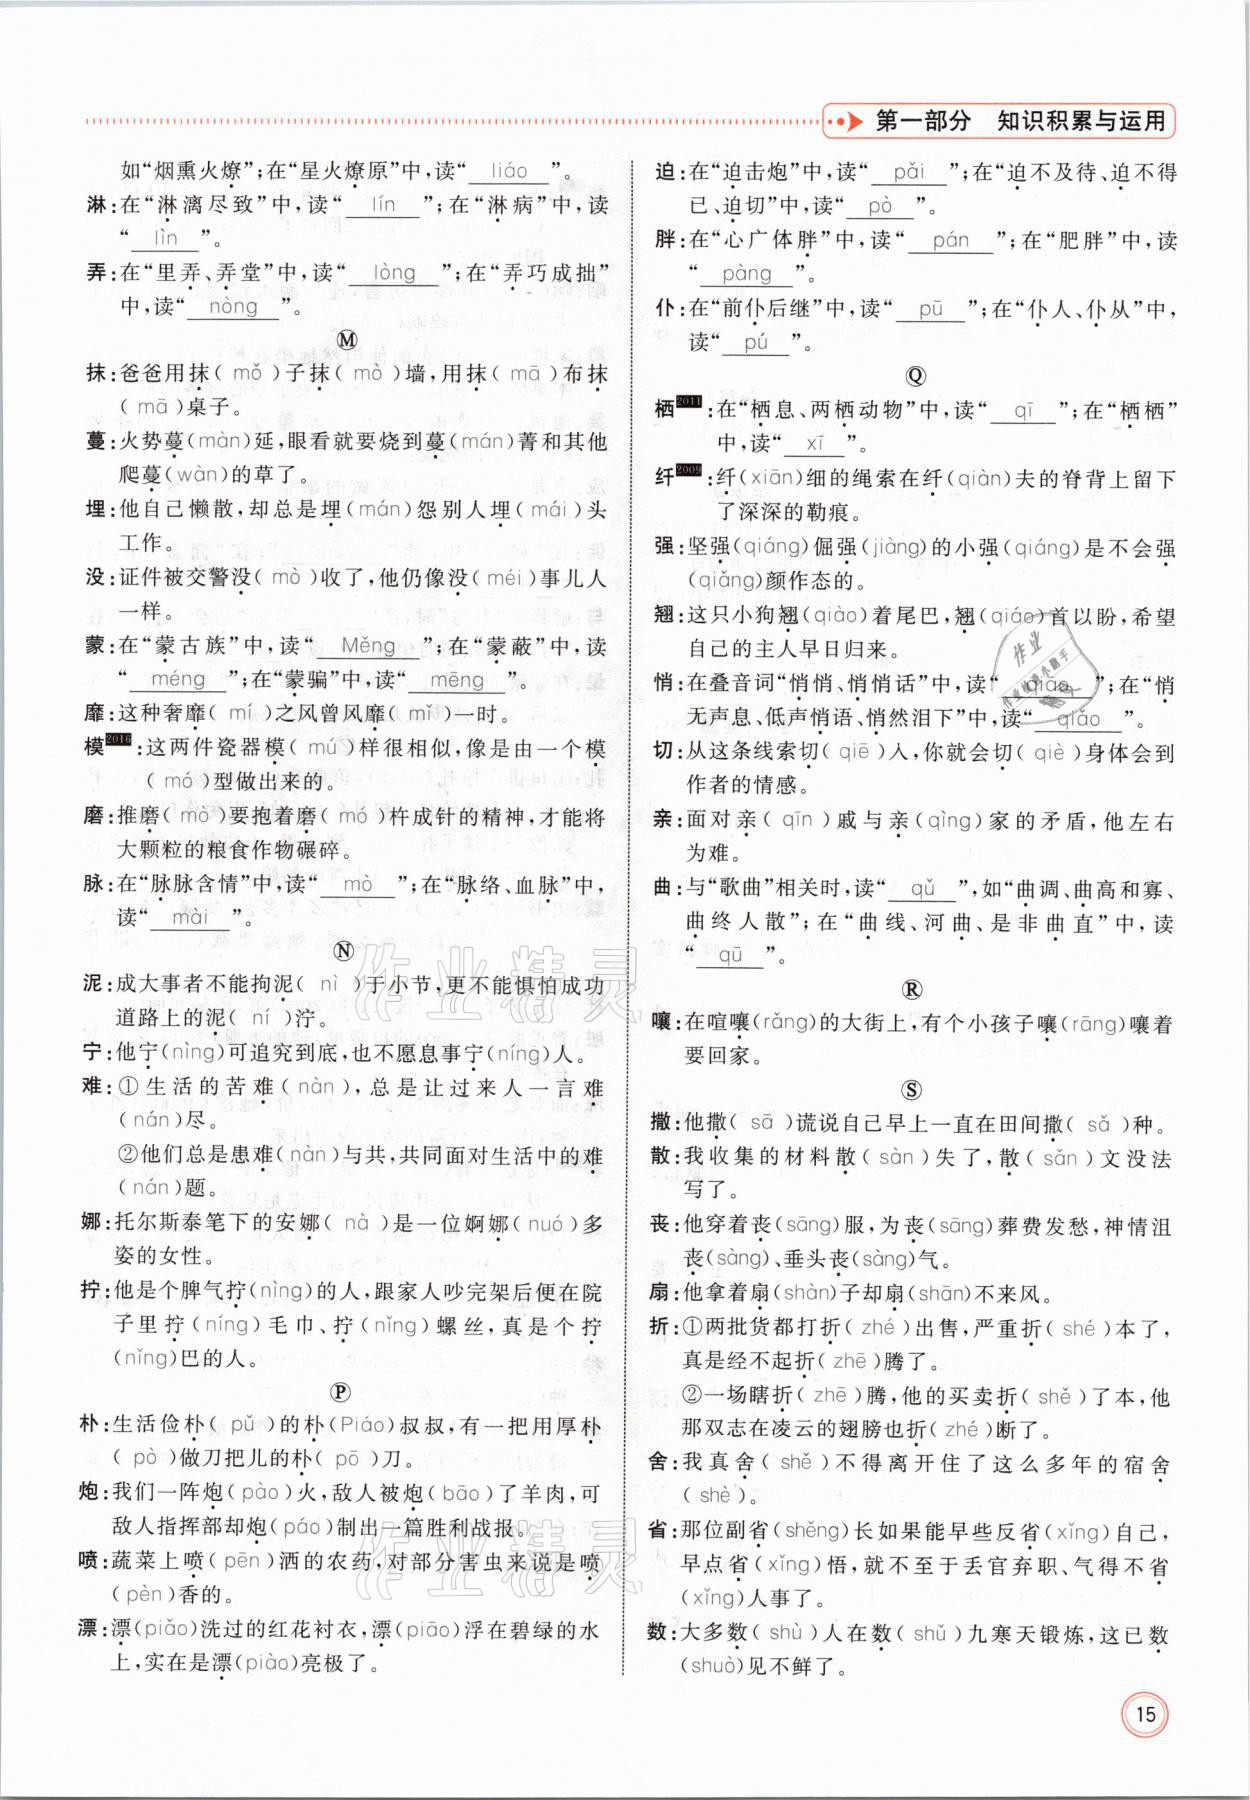 第一部分　知识积累与运用
如“烟熏火燎”;在“星火燎原”中,读“ liáo ”。
淋:在“淋漓尽致”中,读“ lín ”;在“淋病”中,读
“ lìn ”。
弄:在“里弄、弄堂”中,读“ lòng ”;在“弄巧成拙”
中,读“ nòng ”。
Ⓜ
抹:爸爸用抹( mǒ )子抹( mò )墙,用抹( mā )布抹
( mā )桌子。
蔓:火势蔓(màn)延,眼看就要烧到蔓(mán)菁和其他
爬蔓(wàn)的草了。
埋:他自己懒散,却总是埋(mán)怨别人埋(mái)头
工作。
没:证件被交警没( mò )收了,他仍像没(méi)事儿人
一样。
蒙:在“蒙古族”中,读“ Měng ”;在“蒙蔽”中,读
“ méng ”;在“蒙骗”中,读“ mēng ”。
靡:这种奢靡( mí )之风曾风靡( mǐ )一时。
模2016:这两件瓷器模( mú )样很相似,像是由一个模
( mó )型做出来的。
磨:推磨( mò )要抱着磨( mó )杵成针的精神,才能将
大颗粒的粮食作物碾碎。
脉:在“脉脉含情”中,读“ mò ”;在“脉络、血脉”中,
读“ mài ”。
Ⓝ
泥:成大事者不能拘泥( nì )于小节,更不能惧怕成功
道路上的泥( ní )泞。
宁:他宁(nìng)可追究到底,也不愿息事宁(níng)人。
难:①生活的苦难(nàn),总是让过来人一言难
(nán)尽。
②他们总是患难(nàn)与共,共同面对生活中的难
(nán)题。
娜:托尔斯泰笔下的安娜( nà )是一位婀娜(nuó)多
姿的女性。
拧:他是个脾气拧(nìng)的人,跟家人吵完架后便在院
子里拧(níng)毛巾、拧(nǐng)螺丝,真是个拧
(nǐng)巴的人。
Ⓟ
朴:生活俭朴( pǔ )的朴(Piáo)叔叔,有一把用厚朴
( pò )做刀把儿的朴( pō )刀。
炮:我们一阵炮(pào)火,敌人被炮(bāo)了羊肉,可
敌人指挥部却炮(páo)制出一篇胜利战报。
喷:蔬菜上喷(pēn)洒的农药,对部分害虫来说是喷
(pèn)香的。
漂:漂(piǎo)洗过的红花衬衣,漂(piāo)浮在碧绿的水
上,实在是漂(piào)亮极了。
迫:在“迫击炮”中,读“ pǎi ”;在“迫不及待、迫不得
已、迫切”中,读“ pò ”。
胖:在“心广体胖”中,读“ pán ”;在“肥胖”中,读
“ pàng ”。
仆:在“前仆后继”中,读“ pū ”;在“仆人、仆从”中,
读“ pú ”。
Ⓠ
栖2011:在“栖息、两栖动物”中,读“ qī ”;在“栖栖”
中,读“ xī ”。
纤2009:纤(xiān)细的绳索在纤(qiàn)夫的脊背上留下
了深深的勒痕。
强:坚强(qiáng)倔强(jiàng)的小强(qiáng)是不会强
(qiǎng)颜作态的。
翘:这只小狗翘(qiào)着尾巴,翘(qiáo)首以盼,希望
自己的主人早日归来。
悄:在叠音词“悄悄、悄悄话”中,读“ qiāo ”;在“悄
无声息、低声悄语、悄然泪下”中,读“ qiǎo ”。
切:从这条线索切(qiē)人,你就会切(qiè)身体会到
作者的情感。
亲:面对亲( qīn )戚与亲(qìng)家的矛盾,他左右
为难。
曲:与“歌曲”相关时,读“ qǔ ”,如“曲调、曲高和寡、
曲终人散”;在“曲线、河曲、是非曲直”中,读
“ qū ”。
Ⓡ
嚷:在喧嚷(rǎng)的大街上,有个小孩子嚷(rāng)嚷着
要回家。
Ⓢ
撒:他撒( sā )谎说自己早上一直在田间撒( sǎ )种。
散:我收集的材料散(sàn)失了,散(sǎn)文没法
写了。
丧:他穿着丧(sāng)服,为丧(sāng)葬费发愁,神情沮
丧(sàng)、垂头丧(sàng)气。
扇:他拿着扇(shàn)子却扇(shān)不来风。
折:①两批货都打折(zhé)出售,严重折(shé)本了,
真是经不起折(zhē)腾了。
②一场瞎折(zhē)腾,他的买卖折(shě)了本,他
那双志在凌云的翅膀也折(zhé)断了。
舍:我真舍(shě)不得离开住了这么多年的宿舍
(shè)。
省:那位副省(shěng)长如果能早些反省(xǐng)自己,
早点省(xǐng)悟,就不至于丢官弃职、气得不省
(xǐng)人事了。
数:大多数(shù)人在数(shǔ)九寒天锻炼,这已数
(shuò)见不鲜了。
15
作业精灵
作业精灵